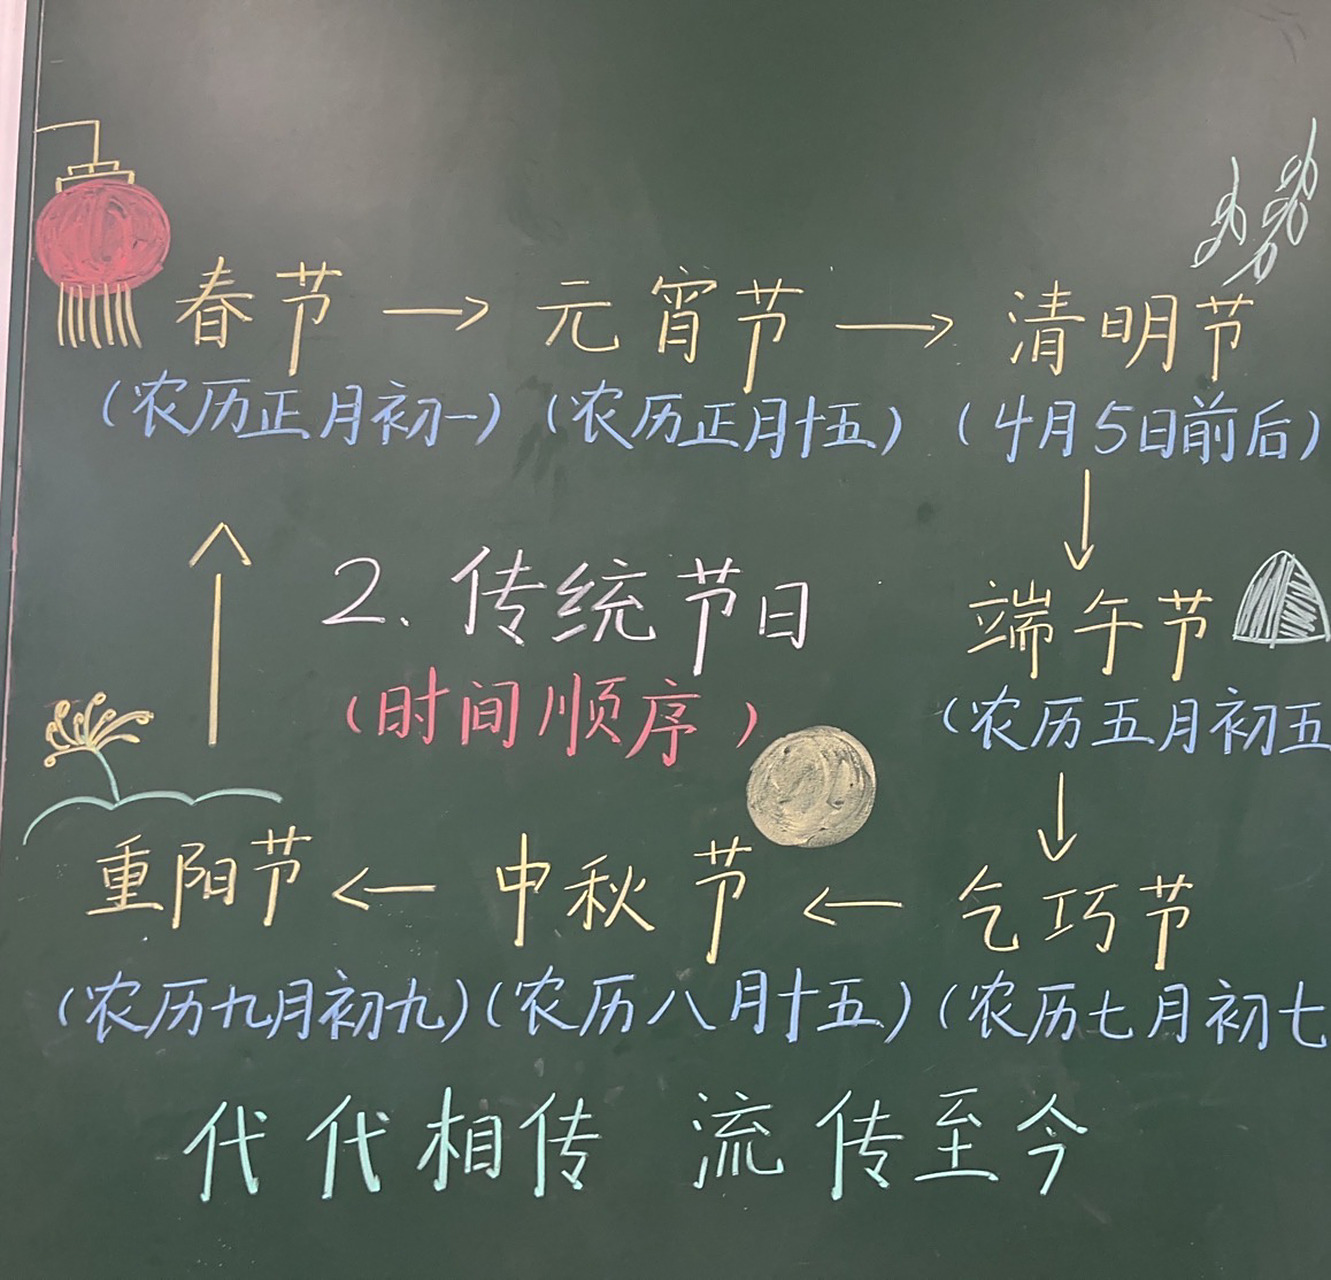 春节 → 元宵节 → 清明节
(农历正月初一) (农历正月十五) (4月5日前后)
↓
2. 传统节日
(时间顺序)
端午节
(农历五月初五
↓
重阳节 ← 中秋节 ← 乞巧节
(农历九月初九) (农历八月十五) (农历七月初七
↑
代代相传 流传至今